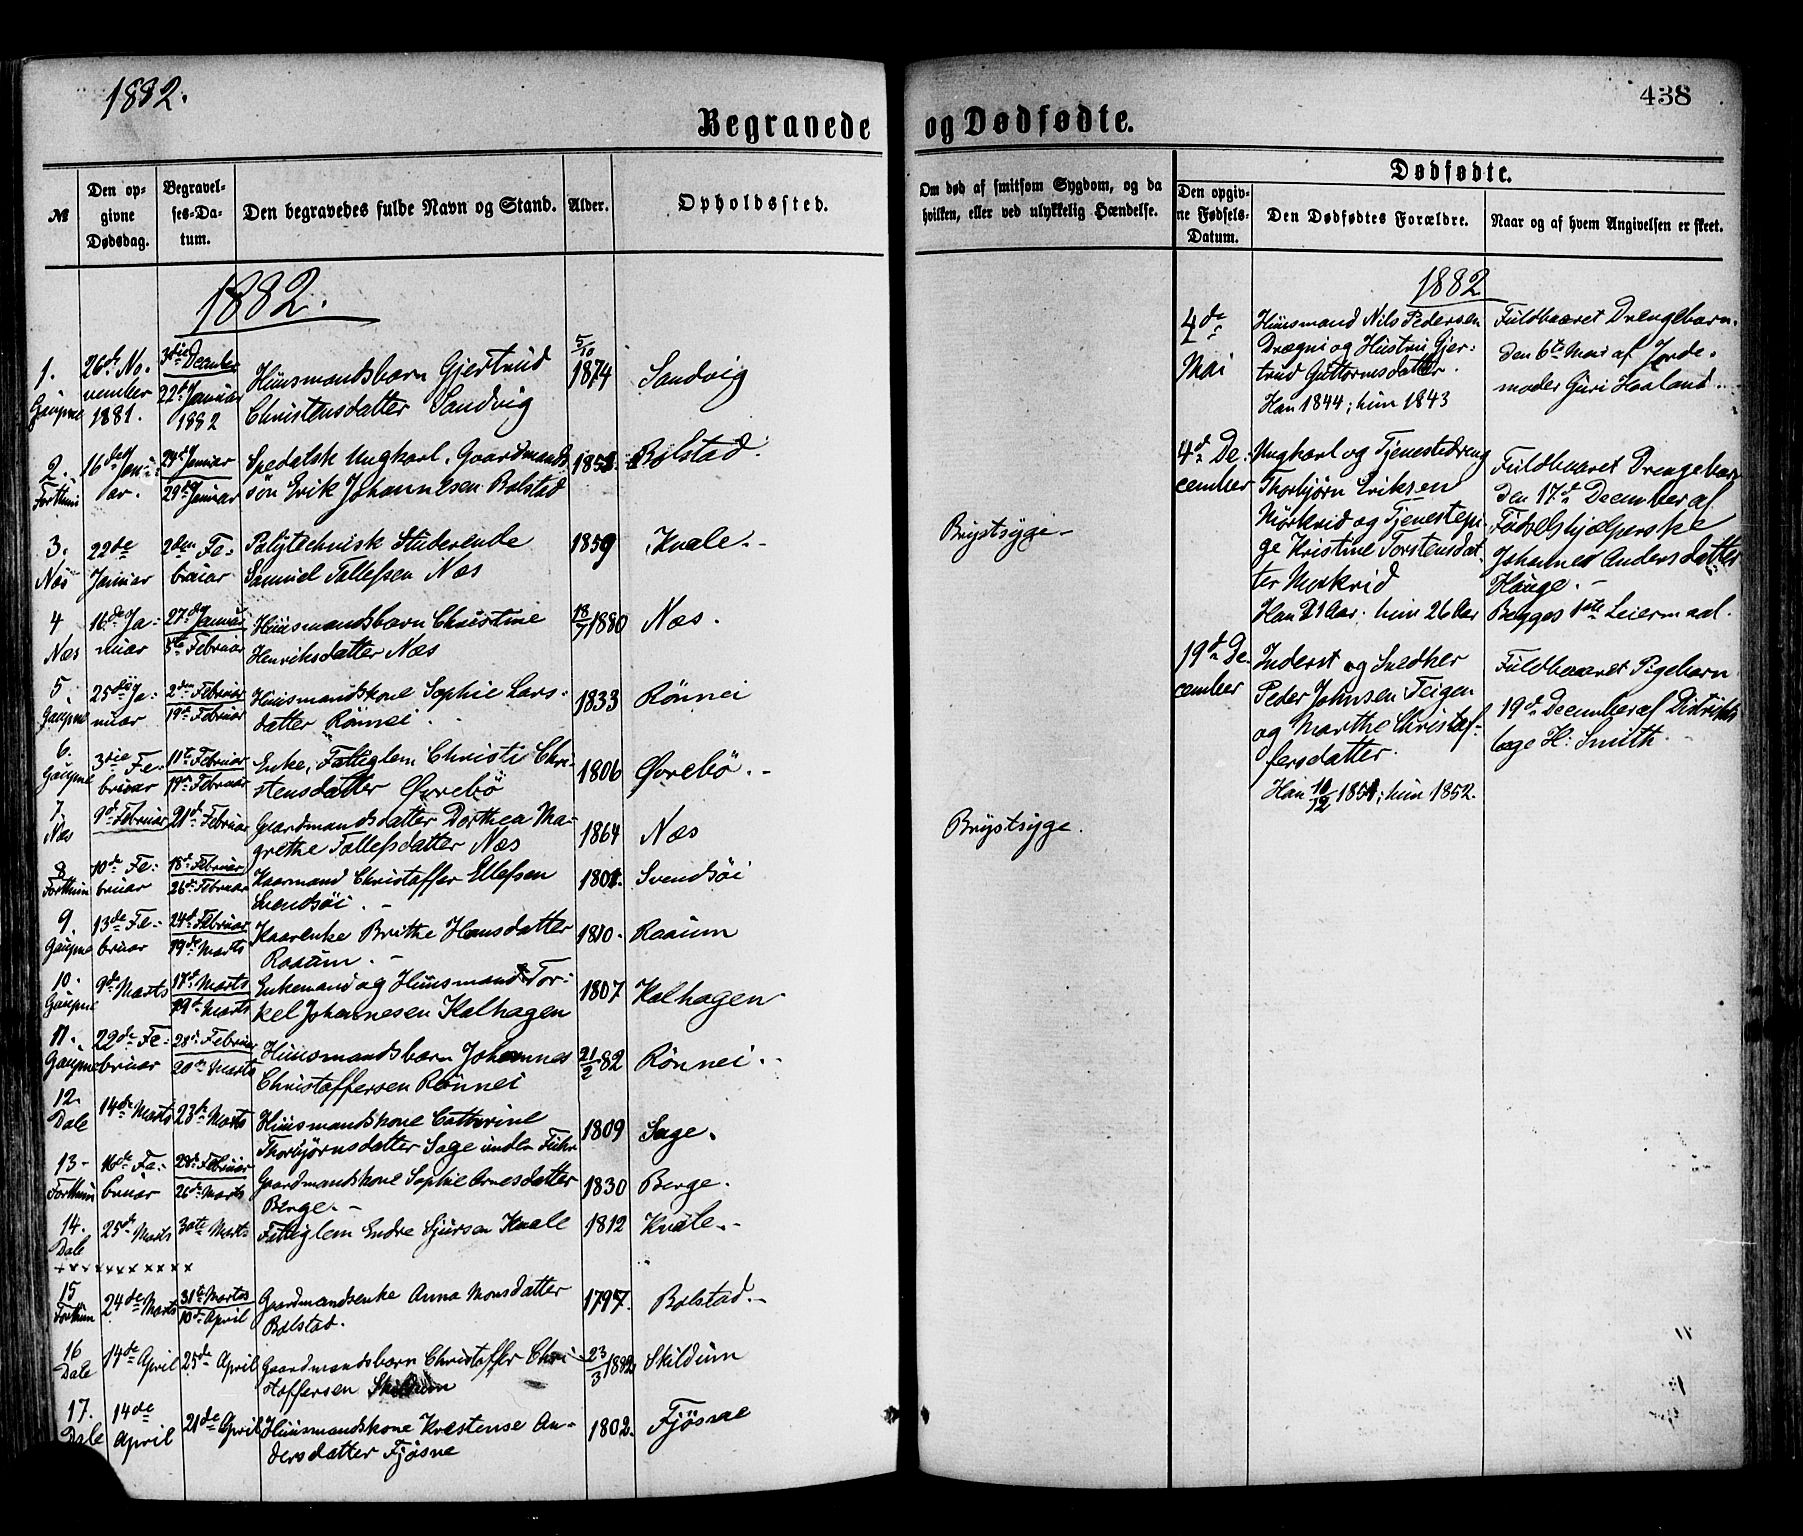 1882.
Begravede
№
Den op-
givne
Dødsdag.
Begravel-
ses-Da-
tum.
Den begravedes fulde Navn og Stand.
Alder.
Opholdssted.
1882.
1.
Gaupne
26de No-
vember
1881.
3die December
22de Januar
1882
Huusmandsbarn Gjertrud
Christensdatter Sandvig
5/10
1874
Sandvig
2.
Forthun
16de Janu-
ar.
24de Januar
29de Januar
Spedalsk Ungkarl, Gaardmands
søn Erik Johannesen Bolstad
Bolstad.
3.
Næs
22de
Januar
2den Fe-
bruar
Polytechnisk Studerende
Samuel Tollefsen Næs
1859
Kvale.
4
Næs
16de Ja-
nuar
27de Januar
5te Februar
Huusmandsbarn Christine
Henriksdatter Næs
18/7 1880
Næs.
5.
Gaupne
25de Ja-
nuar
2den Februar
19de Februar
Huusmandskone Sophie Lars-
datter Rönnei.
1833
Rönnei
6.
Gaupne
3die Fe-
bruar
11te Februar
19de Februar
Enke, Fattiglem Christi Chri-
stensdatter Øvrebö
1806
Øvrebö.
7.
Næs
9de Februar
21de Februar
Gaardmandsdatter Dorthea Ma-
grethe Tollefsdatter Næs
1864
Næs
8
Forthun
10de Fe-
bruar
18de Februar
26de Februar
Kaarmand Christoffer Ellefsen
Svendsöi.
1801.
Svendsöi
9.
Gaupne
13de Fe-
bruar
24de Februar
19de Marts
Kaarenke Brithe Hansdatter
Roaum.
1810.
Roaum
10.
Gaupne
9de Marts
17de Marts
19de Marts
Enkemand og Huusmand Tor-
kel Johannesen Kalhagen
1807
Kalhagen
11.
Gaupne
22de Fe-
bruar
28de Februar
20de Marts
Huusmandsbarn Johannes
Christoffersen Rönnei
21/2 82
Rönnei.
12.
Dale
14de Marts
23de Marts
Huusmandskone Cathrine
Thorbjörnsdatter Sage under
1809
Sage.
13
Forthun
16de Fe-
bruar
28de Februar
26de Marts
Gaardmandskone Sophie Arnesdatter
Berge.
1830
Berge.
14.
Dale
25de Marts
30te Marts
Fattiglem Endre Sjursen Kvale
1812
Kvale.
15
Forthun
24de Marts
31te Marts
10de April
Gaardmandsenke Anna Monsdatter
Bolstad.
1797.
Bolstad.
16
Dale
14de April
25de April
Gaardmandsbarn Christoffer Chri-
stoffersen Skildum
23/3 1882
Skildum
17.
Dale
14de
April
21de April
Huusmandskone Krestense An-
dersdatter Fjösne
1802.
Fjösne
438
og Dødfødte.
Om død af smitsom Sygdom, og da
hvilken, eller ved ulykkelig Hændelse.
Dødfødte.
Den opgiv-
ne Fødsels-
Datum.
Den Dødfødtes Forældre.
Naar og af hvem Angivelsen er skeet.
Brystsyge
Brystsyge.
1882
4de
Mai
Huusmand Nils Pedersen
Drægni og Hustru Gjer-
trud Guttormsdatter.
Han 1844; hun 1843
Fuldbaaret Drengebarn.
den 6te Mai af Jorde-
moder Guri Haaland.
4de De-
cember
Ungkarl og Tjenestedreng
Thorbjørn Eriksen
Mørkrid og Tjenestepi-
ge Kristine Torstensdat-
ter Mørkrid
Han 21 Aar; hun 26 Aar
Fuldbaaret Drengebarn
den 17de December af
Fødselshjælperske
Johanne Andersdatter
Hauge.
Begges 1ste Leiermaal.
19de De-
cember
Inderst og Snedker
Peder Johnsen Teigen
og Marthe Christof-
fersdatter.
Han 10/12 1851; hun 1852.
Fuldbaaret Pigebarn
19de December af Distrikts
læge H. Smith.